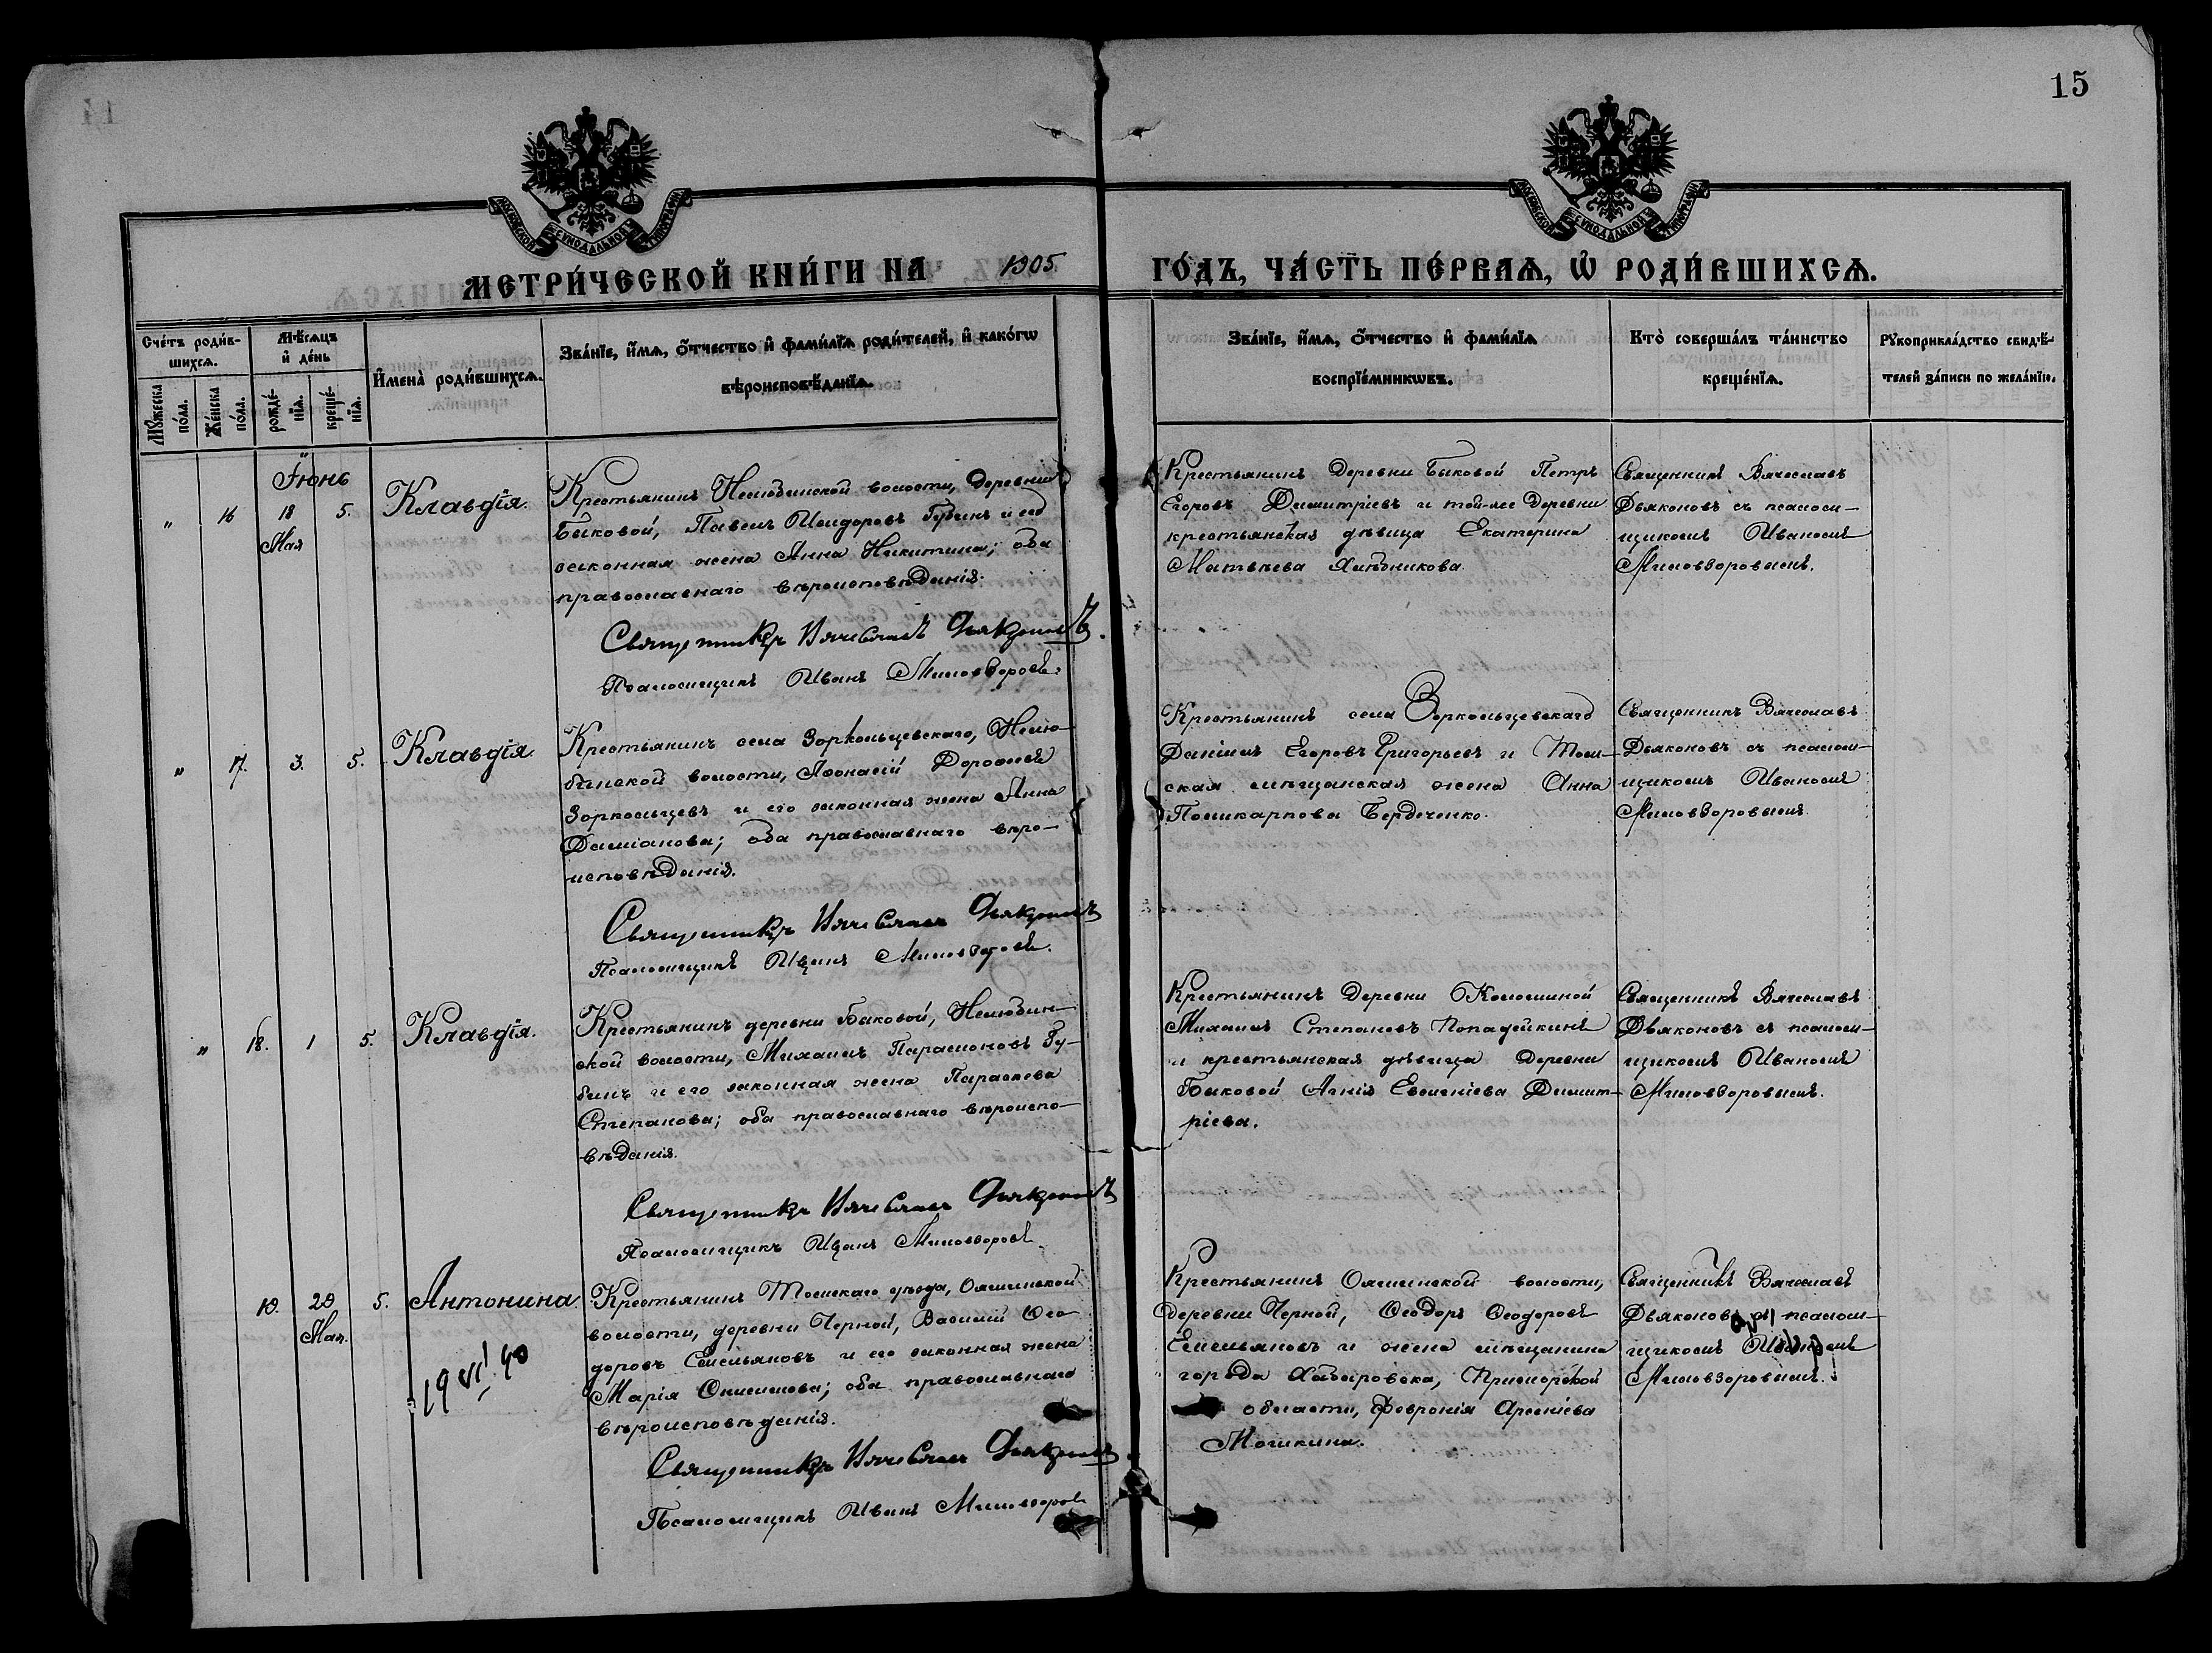 15
МОСКОВСКОЙ СѴНОДАЛЬНОЙ ТИПОГРАФІИ
МОСКОВСКОЙ СѴНОДАЛЬНОЙ ТИПОГРАФІИ
МЕТРИ́ЧЕСКОЙ КНИ́ГИ НА 1905 ГО́ДЪ, ЧА́СТЬ ПЕ́РВАѦ, Ѡ҆ РОДИ́ВШИХСѦ.
Сче́тъ роди́в-
шихсѧ.
Мꙋ́жеска по́ла.
Же́нска по́ла.
Мѣ́сѧцъ
и҆ де́нь
рожде́-нїѧ.
креще́-нїѧ.
И҆мена̀ роди́вшихсѧ.
Зва́нїе, и҆́мѧ, ѻ҆́тчество и҆ фами́лїѧ роди́телей, и҆ како́гѡ
вѣроисповѣ́данїѧ.
Зва́нїе, и҆́мѧ, ѻ҆́тчество и҆ фами́лїѧ
воспрїе́мникѡвъ.
Кто̀ соверша́лъ та́инство
креще́нїѧ.
Рꙋкоприкла́дство свидѣ́-
телей за́писи по жела́нїю.
Іюнь
„ 16 18 5.
Мая
Клавдія.
Крестьянинъ Нелюбинской волости, деревни
Быковой, Павелъ Исидоровъ Губинъ и его
законная жена Анна Никитина; оба
православнаго вѣроисповѣданія.
Священникъ Вячеславъ Дьяконовъ.
Псаломщикъ Иванъ Миловзоровъ.
Крестьянинъ деревни Быковой Петръ
Егоровъ Димитріевъ и той-же деревни
крестьянская дѣвица Екатерина
Матвѣева
Священникъ Вячеславъ
Дьяконовъ съ псалом-
щикомъ Иваномъ
Миловзоровымъ.
„ 17. 3. 5.
Клавдія.
Крестьянинъ села Зоркольцевскаго, Нелю-
бинской волости, Аѳонасій Дороѳеевъ
Зоркольцевъ и его законная жена Анна
Даміанова; оба православнаго вѣро-
исповѣданія.
Священникъ Вячеславъ Дьяконовъ
Псаломщикъ Иванъ Миловзоровъ.
Крестьянинъ села Зоркольцевскаго
Даніилъ Егоровъ Григорьевъ и Том-
ская мѣщанская жена Анна
Поликарпова Бердеченко.
Священникъ Вячеславъ
Дьяконовъ съ псалом-
щикомъ Иваномъ
Миловзоровымъ.
„ 18. 1 5.
Клавдія.
Крестьянинъ деревни Быковой, Нелюбин-
ской волости, Михаилъ Парамоновъ Гу-
бинъ и его законная жена Параскева
Степанова; оба православнаго вѣроиспо-
вѣданія.
Священникъ Вячеславъ Дьяконовъ
Псаломщикъ Иванъ Миловзоровъ.
Крестьянинъ деревни
Михаилъ Степановъ Попадейкинъ
и крестьянская дѣвица деревни
Быковой Агнія Евгеніева Димит-
ріева.
Священникъ Вячеславъ
Дьяконовъ съ псалом-
щикомъ Иваномъ
Миловзоровымъ.
19. 29 5.
Мая.
Антонина.
19 VI 40
Крестьянинъ Томскаго уѣзда, Ояшинской
волости, деревни Черной, Василій Ѳео-
доровъ Емельяновъ и его законная жена
Марія Онисимова; оба православнаго
вѣроисповѣданія.
Священникъ Вячеславъ Дьяконовъ
Псаломщикъ Иванъ Миловзоровъ
Крестьянинъ Ояшинской волости,
деревни Черной, Ѳеодоръ Ѳеодоровъ
Емельяновъ и жена мѣщанина
города Хабаровска, Приморской
области, Февронія Арсеніева
Мошкина.
Священникъ Вячеславъ
Дьяконовъ съ псалом-
щикомъ Иваномъ
Миловзоровымъ.